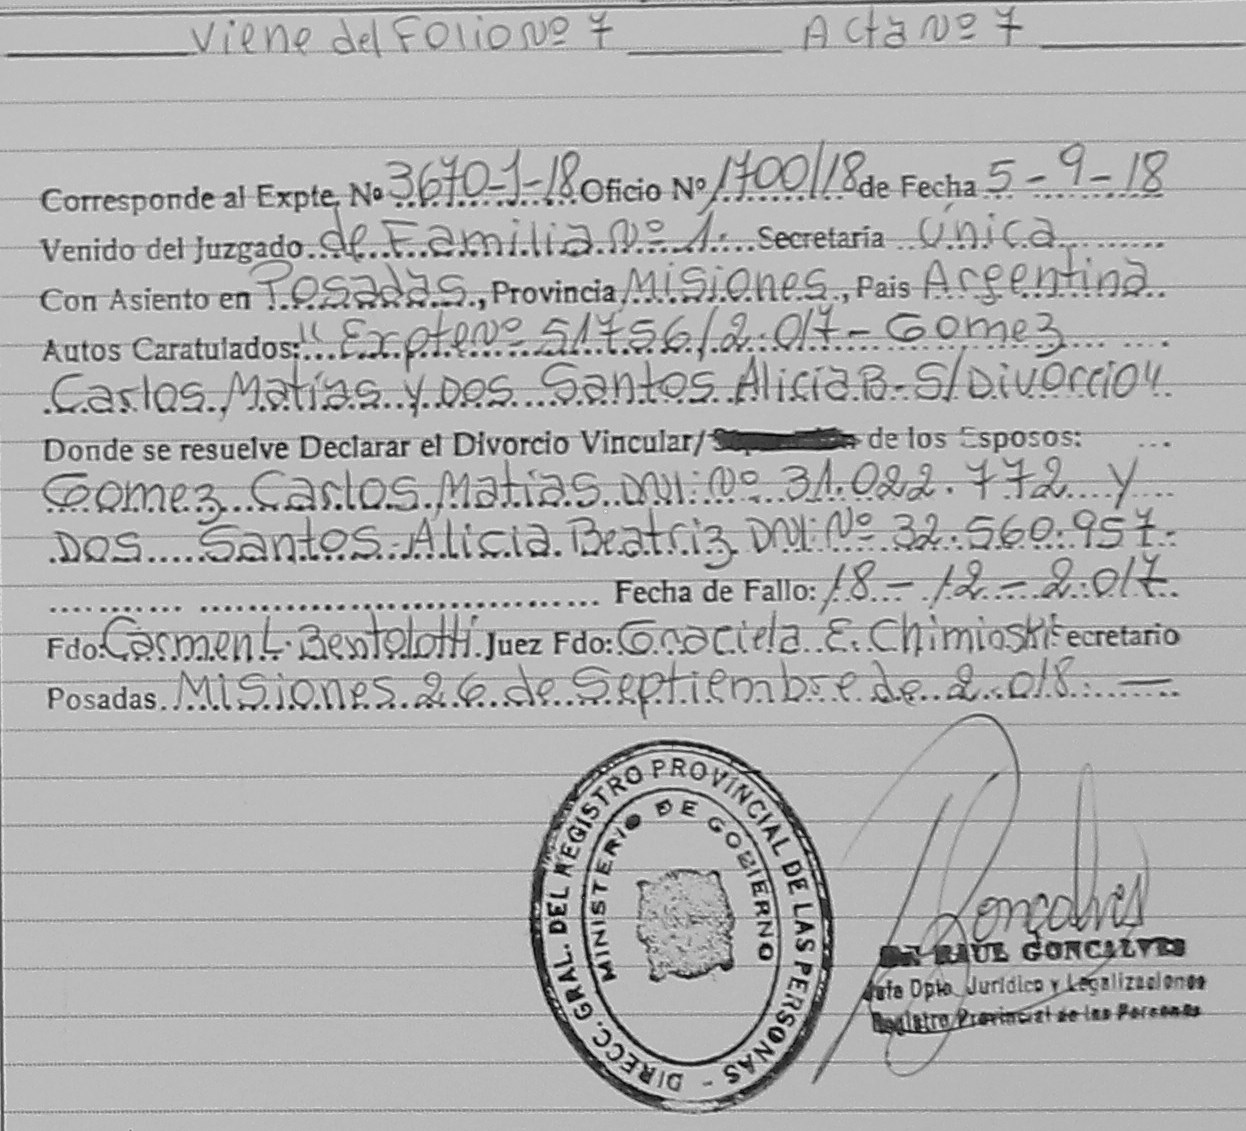 Viene del Folio Nº 7 Acta Nº 7
Corresponde al Expte. Nº 3670-J-18 Oficio Nº 1700/18 de Fecha 5-9-18
Venido del Juzgado de Familia Nº 1. Secretaria Única
Con Asiento en Posadas, Provincia Misiones, Pais Argentina
Autos Caratulados: "Expte Nº 51756/2.017- Gomez
Carlos Matías y Dos Santos Alicia B- S/Divorcio"
Donde se resuelve Declarar el Divorcio Vincular/ de los Esposos:
Gomez Carlos Matías DNI: Nº 31.022.772 y
Dos Santos Alicia Beatriz DNI: Nº 32.560.957.
Fecha de Fallo: 18-12-2.017
Fdo: Carmen L. Juez Fdo: Graciela E. Chimioski Secretario
Posadas. Misiones 26 de Septiembre de 2.018. —
DIRECC. GRAL. DEL REGISTRO PROVINCIAL DE LAS PERSONAS -
MINISTERIO DE GOBIERNO
Gonçalves
RAUL GONCALVES
Jefe Dpto. Jurídico y Legalizaciones
Registro Provincial de las Personas